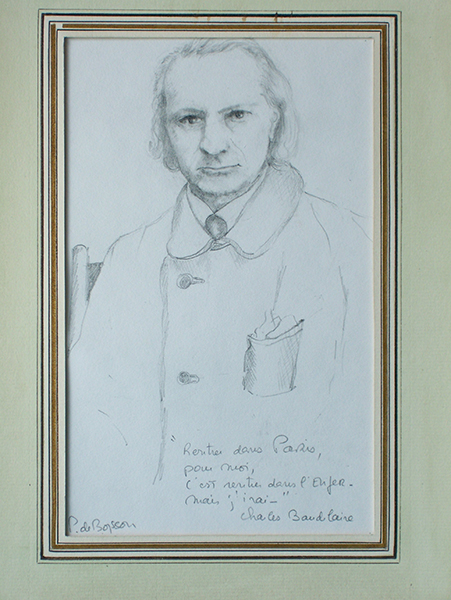 "Rentrer dans Paris,
pour moi,
c'est rentrer dans l'Enfer-
mais j'irai-"
Charles Baudelaire
P. de Boysson